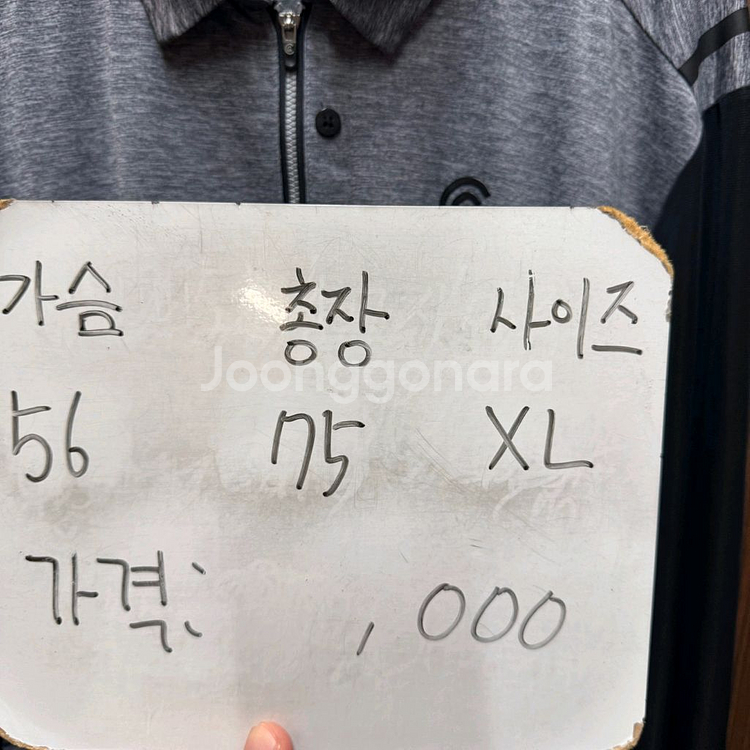 가슴 총장 사이즈
Joonggonara
56 75 XL
가격: ,000